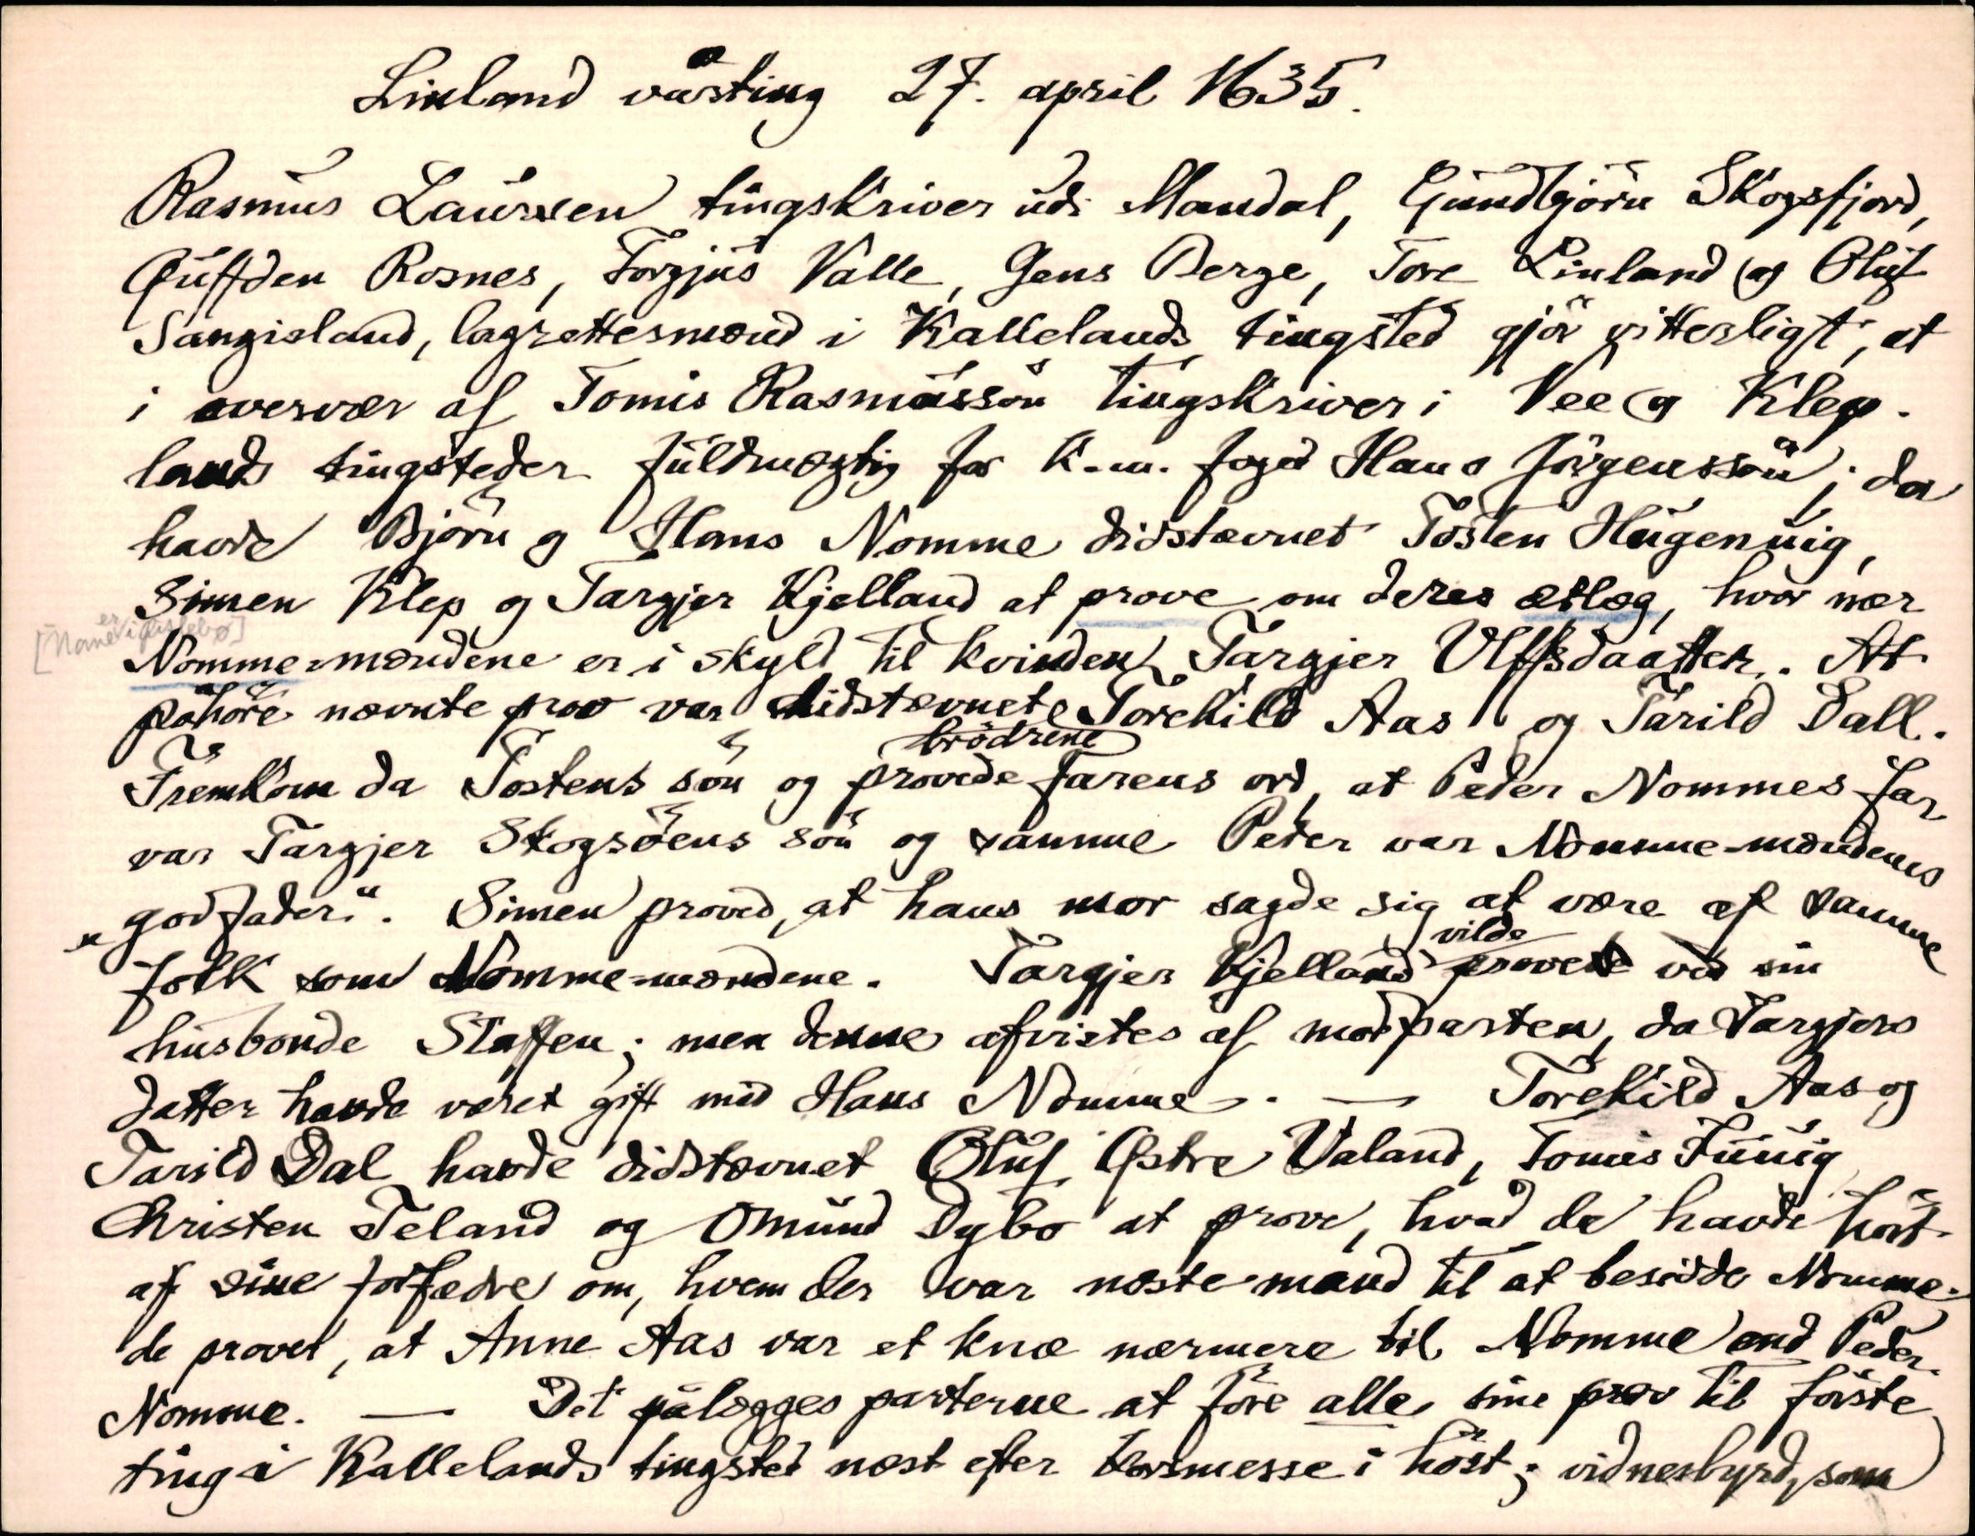 Linland vårting 27. april 1635.
Rasmus Laursen tingskriver udi Mandal, Gundbjörn Skogsfjord,
Guffden Rosnes, Torgjus Valle, Jens Berge, Tore Linland og Oluf
Sangisland, lagrettesmænd i Kallelands tingsted gjör vitterligt, at
i overvær af Tomis Rasmussön tingskriver i Vee og Klep-
lands tingsteder fuldmægtig for k.m. foged Hans Jörgenssön; da
havde Björn og Hans Nomme didstævnet Tosten Hugenuig,
Simen Klep og Targjer Kjelland at prove om deres ætlæg, hvor nær
Nomme-mændene er i skyld til kvinden Targjer Ulffsdaatter. At
påhöre nævnte prov var didstævnet Torekild Aas og Tarild Dall.
Fremkom da Tostens sön og brödrene provede farens ord, at Peder Nommes far
var Targjer Skogsöens sön og samme Peder var Nomme-mændenes
"godfader". Simen proved, at hans mor sagde sig at være af samme
folk som Nomme-mændene. Targjer Kjelland vilde prove ved sin
husbonde Staffen; men denne afvistes af modparten, da Targjers
datter havde været gift med Hans Nomme. — Torekild Aas og
Tarild Dal havde didstævnet Oluf Östre Valand, Tomis Fuuig
Christen Teland og Omund Dybo at prove, hvad de havde hört
af sine forfædre om, hvem der var næste mand til at besidde Nomme.
de provet, at Anne Aas var et knæ nærmere til Nomme end Peder
Nomme. — Det pålægges parterne at före alle sine prov til förste
ting i Kallelands tingsted næst efter korsmesse i höst; vidnesbyrd, som